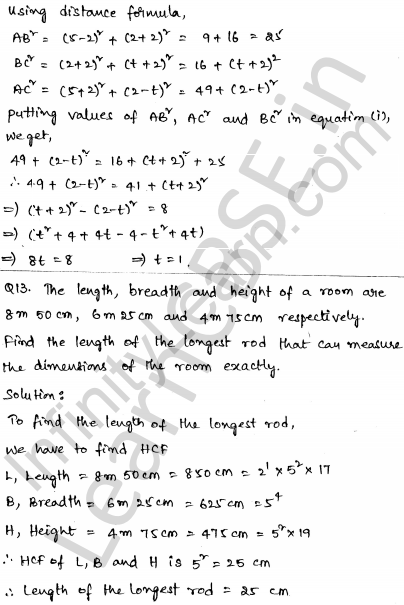 Using distance formula,
AB² = (5-2)² + (2+2)² = 9+16 = 25
BC² = (2+2)² + (t+2)² = 16 + (t+2)²
AC² = (5+2)² + (2-t)² = 49 + (2-t)²
Putting values of AB², AC² and BC² in equation (i),
we get,
49 + (2-t)² = 16 + (t+2)² + 25
∴ 49 + (2-t)² = 41 + (t+2)²
⇒ (t+2)² - (2-t)² = 8
⇒ (t² + 4 + 4t - 4 - t² + 4t)
⇒ 8t = 8 ⇒ t = 1.
Q13. The length, breadth and height of a room are
8m 50cm, 6m 25cm and 4m 75cm respectively.
Find the length of the longest rod that can measure
the dimensions of the room exactly.
Solution:
To find the length of the longest rod,
we have to find HCF
L, Length = 8m 50cm = 850cm = 2¹ × 5² × 17
B, Breadth = 6m 25cm = 625cm = 5⁴
H, Height = 4m 75cm = 475cm = 5² × 19
∴ HCF of L, B and H is 5² = 25 cm
∴ Length of the longest rod = 25 cm